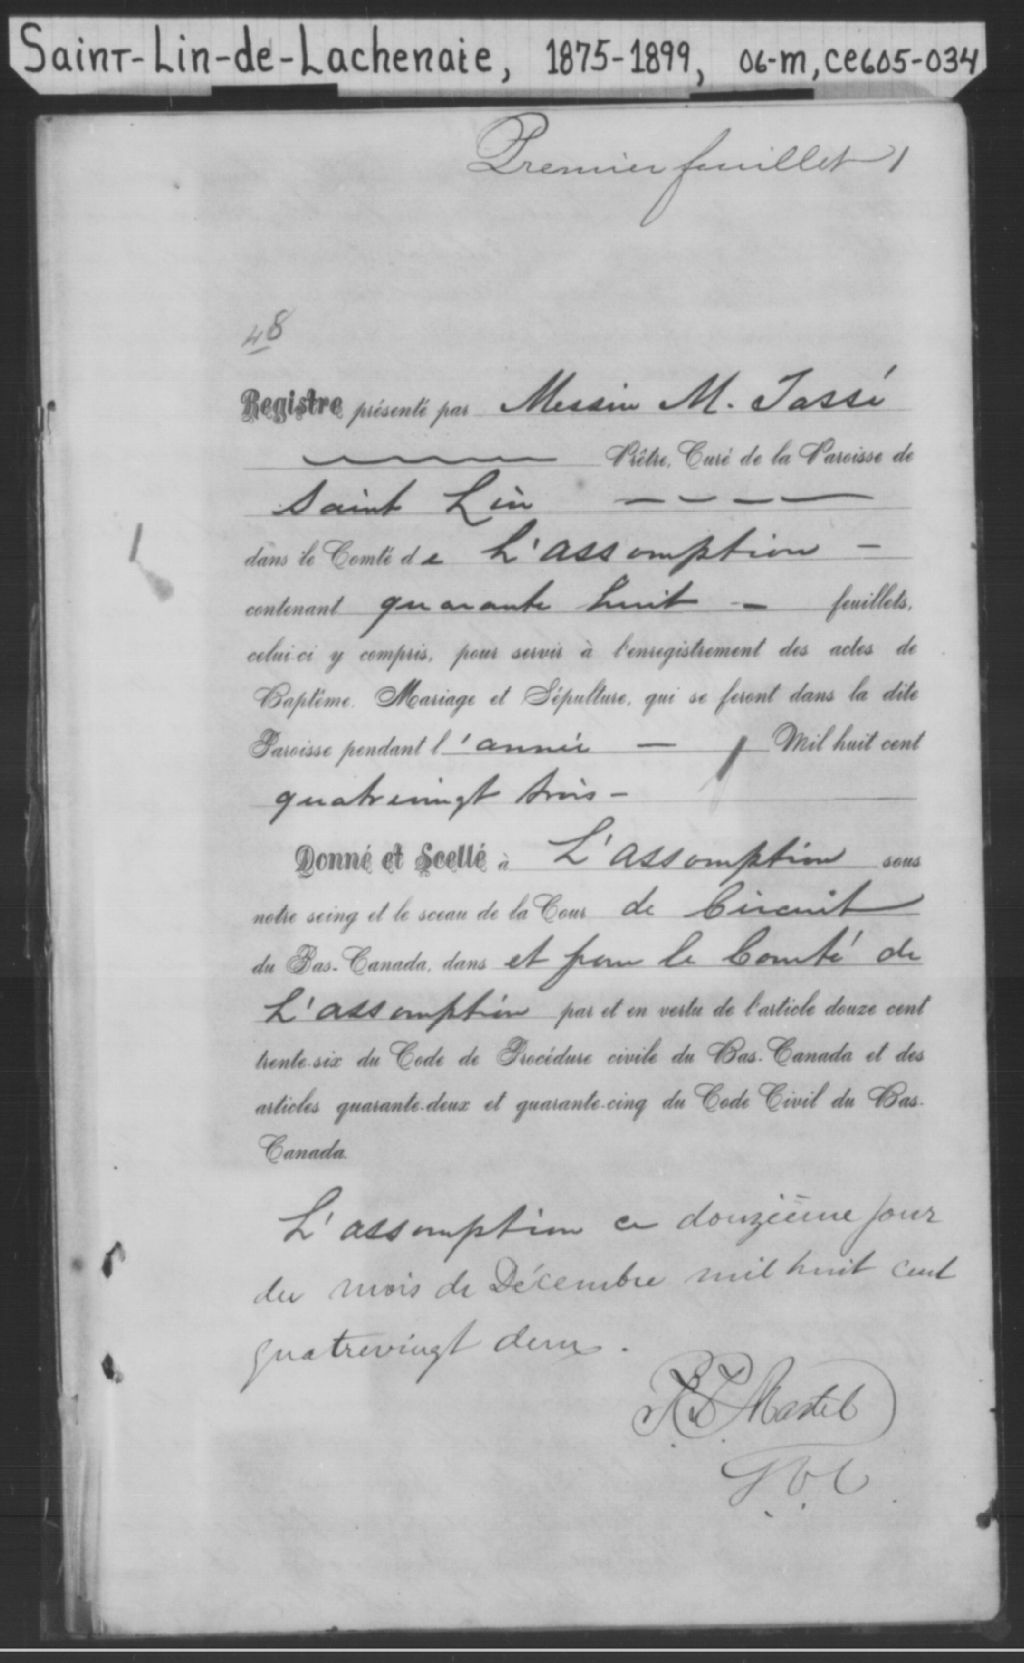 Saint-Lin-de-Lachenaie, 1875-1899, 06-m, CE605-034
Premier feuillet 1
48
Registre présenté par Messire M. Jassé
Prêtre, Curé de la Paroisse de
Saint Lin
dans le Comté de L'assomption
contenant quarante huit feuillets,
celui-ci y compris, pour servir à l'enregistrement des actes de
Baptême, Mariage et Sépulture, qui se feront dans la dite
Paroisse pendant l'année Mil huit cent
quatrevingt trois
Donné et Scellé à L'assomption sous
notre seing et le sceau de la Cour de Circuit
du Bas-Canada, dans et pour le Comté de
L'assomption par et en vertu de l'article douze cent
trente-six du Code de Procédure civile du Bas-Canada et des
articles quarante-deux et quarante-cinq du Code Civil du Bas-
Canada.
L'assomption ce douzième jour
du mois de Décembre mil huit cent
quatrevingt deux.
Martel